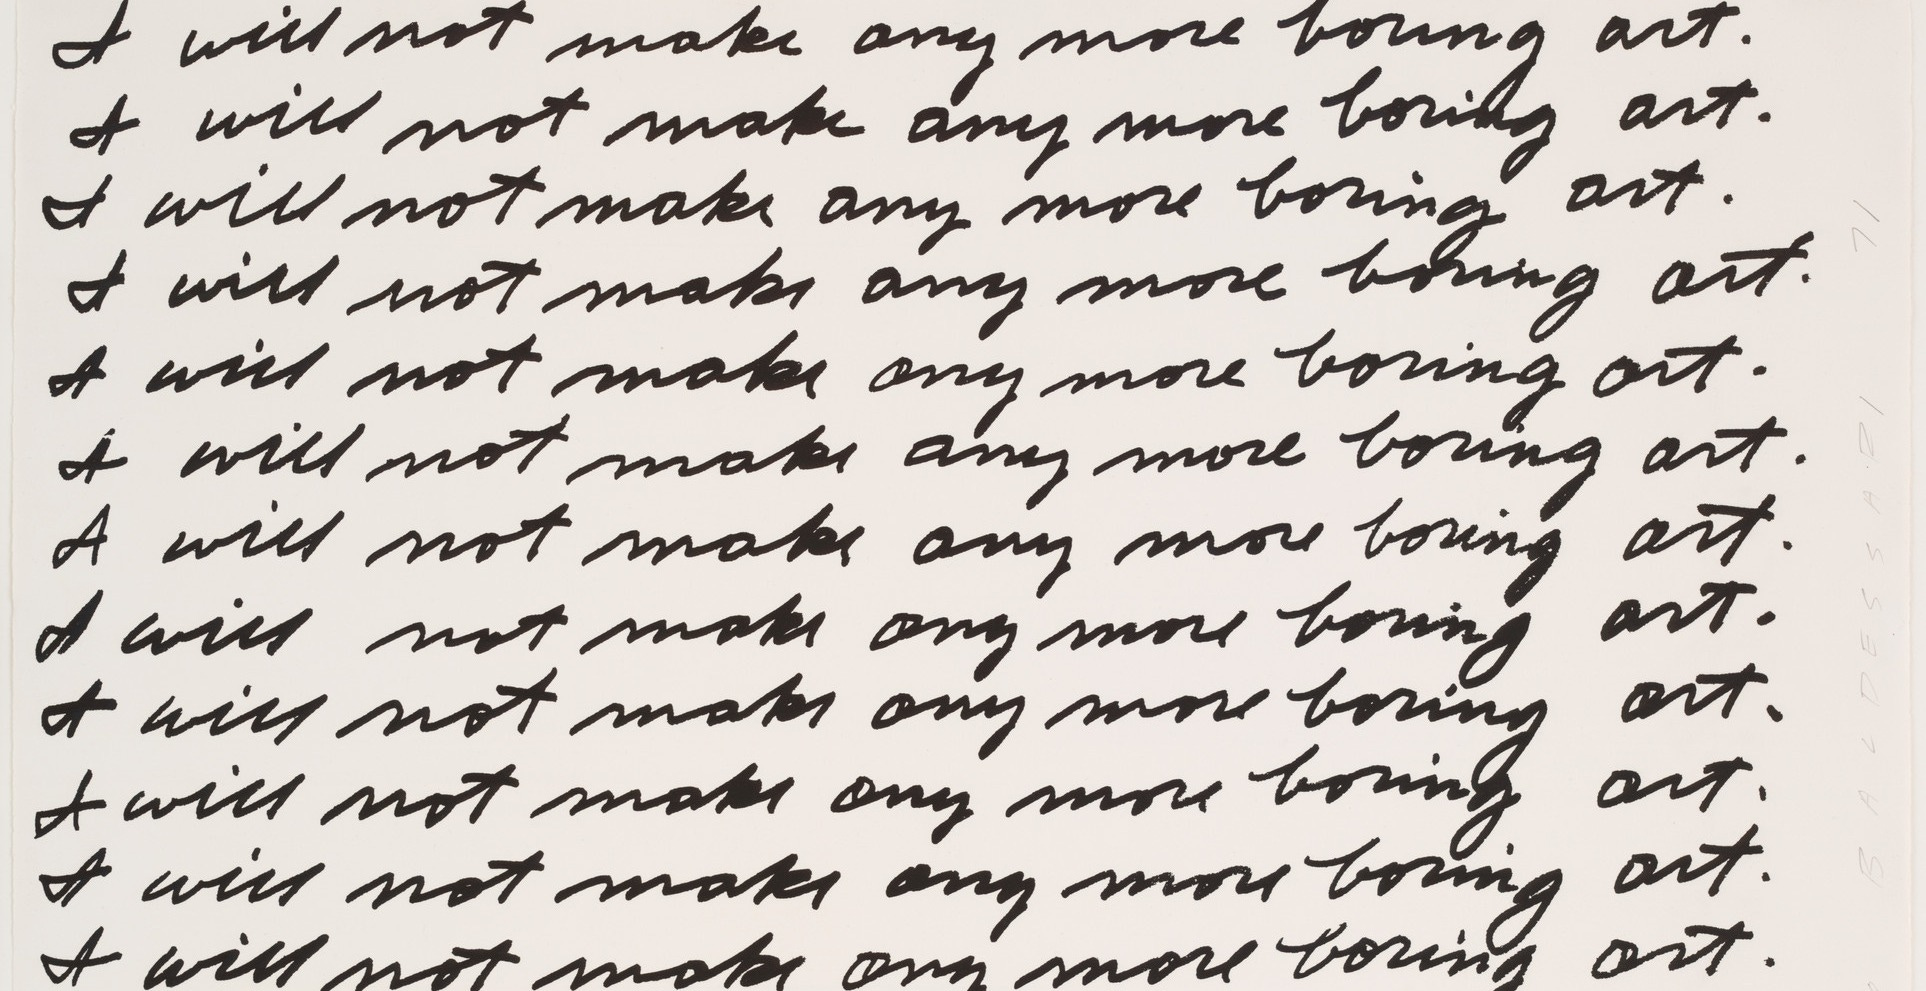 I will not make any more boring art.
I will not make any more boring art.
I will not make any more boring art.
I will not make any more boring art.
I will not make any more boring art.
I will not make any more boring art.
I will not make any more boring art.
I will not make any more boring art.
I will not make any more boring art.
I will not make any more boring art.
I will not make any more boring art.
I will not make any more boring art.
BALDESSARI 71